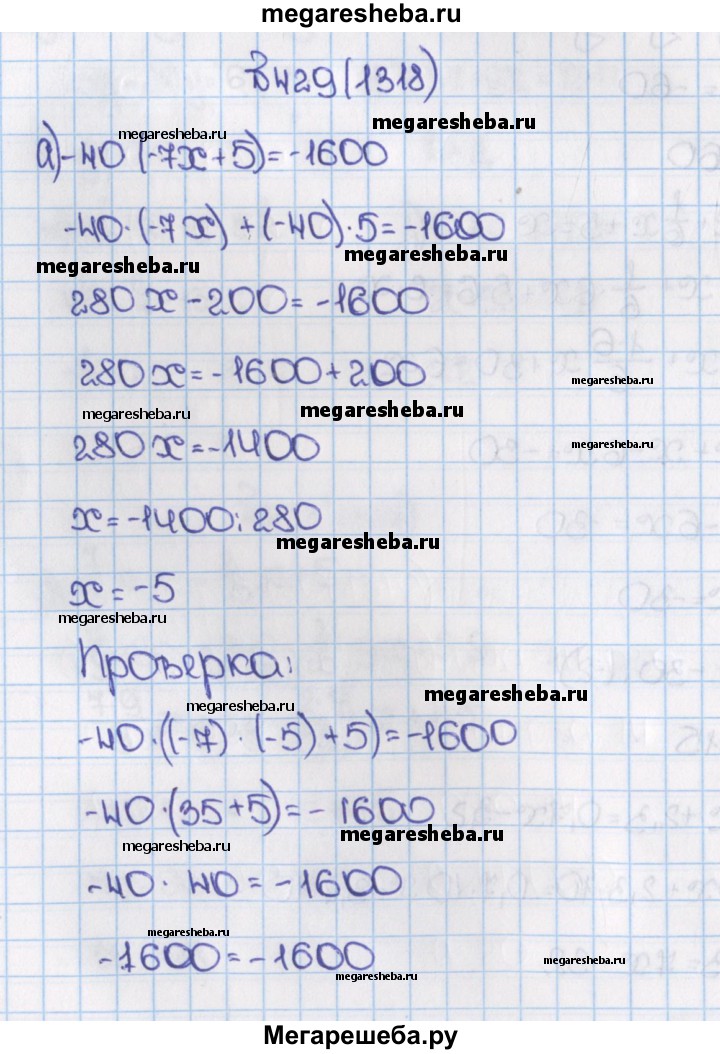 megaresheba.ru
В429(1318)
megaresheba.ru
megaresheba.ru
а) -40·(-7x+5)=-1600
-40·(-7x)+(-40)·5=-1600
megaresheba.ru
megaresheba.ru
280x-200=-1600
280x=-1600+200
megaresheba.ru
megaresheba.ru
megaresheba.ru
280x=-1400
megaresheba.ru
x=-1400:280
megaresheba.ru
x=-5
megaresheba.ru
Проверка:
megaresheba.ru
megaresheba.ru
-40·((-7)·(-5)+5)=-1600
-40·(35+5)=-1600
megaresheba.ru
megaresheba.ru
-40·40=-1600
megaresheba.ru
-1600=-1600
megaresheba.ru
megaresheba.ru
Мегарешеба.ру